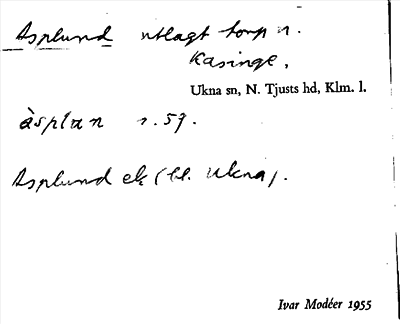 Asplund utlagt torp u.
Kasinge,
Ukna sn, N. Tjusts hd, Klm. l.
àsplan s. 59.
Asplund ek (bl. Ukna).
Ivar Modéer 1955